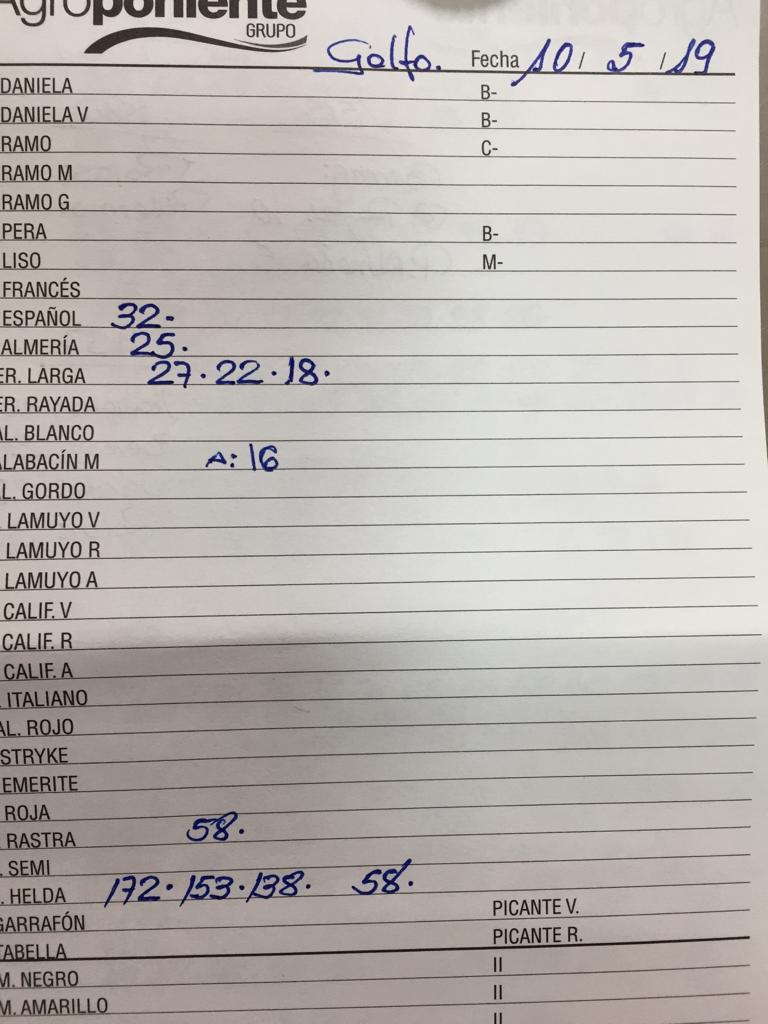 Agroponiente
GRUPO
Golfo. Fecha 10 / 5 / 19
DANIELA B-
DANIELA V B-
RAMO C-
RAMO M
RAMO G
PERA B-
LISO M-
FRANCÉS
ESPAÑOL 32.
ALMERÍA 25.
ER. LARGA 27. 22. 18.
ER. RAYADA
AL. BLANCO
ALABACÍN M A: 16
L. GORDO
. LAMUYO V
LAMUYO R
LAMUYO A
CALIF. V
CALIF. R
CALIF. A
. ITALIANO
AL. ROJO
STRYKE
EMERITE
ROJA
. RASTRA 58.
. SEMI
. HELDA 172. 153. 138. 58.
GARRAFÓN PICANTE V.
TABELLA PICANTE R.
M. NEGRO II
M. AMARILLO II
II